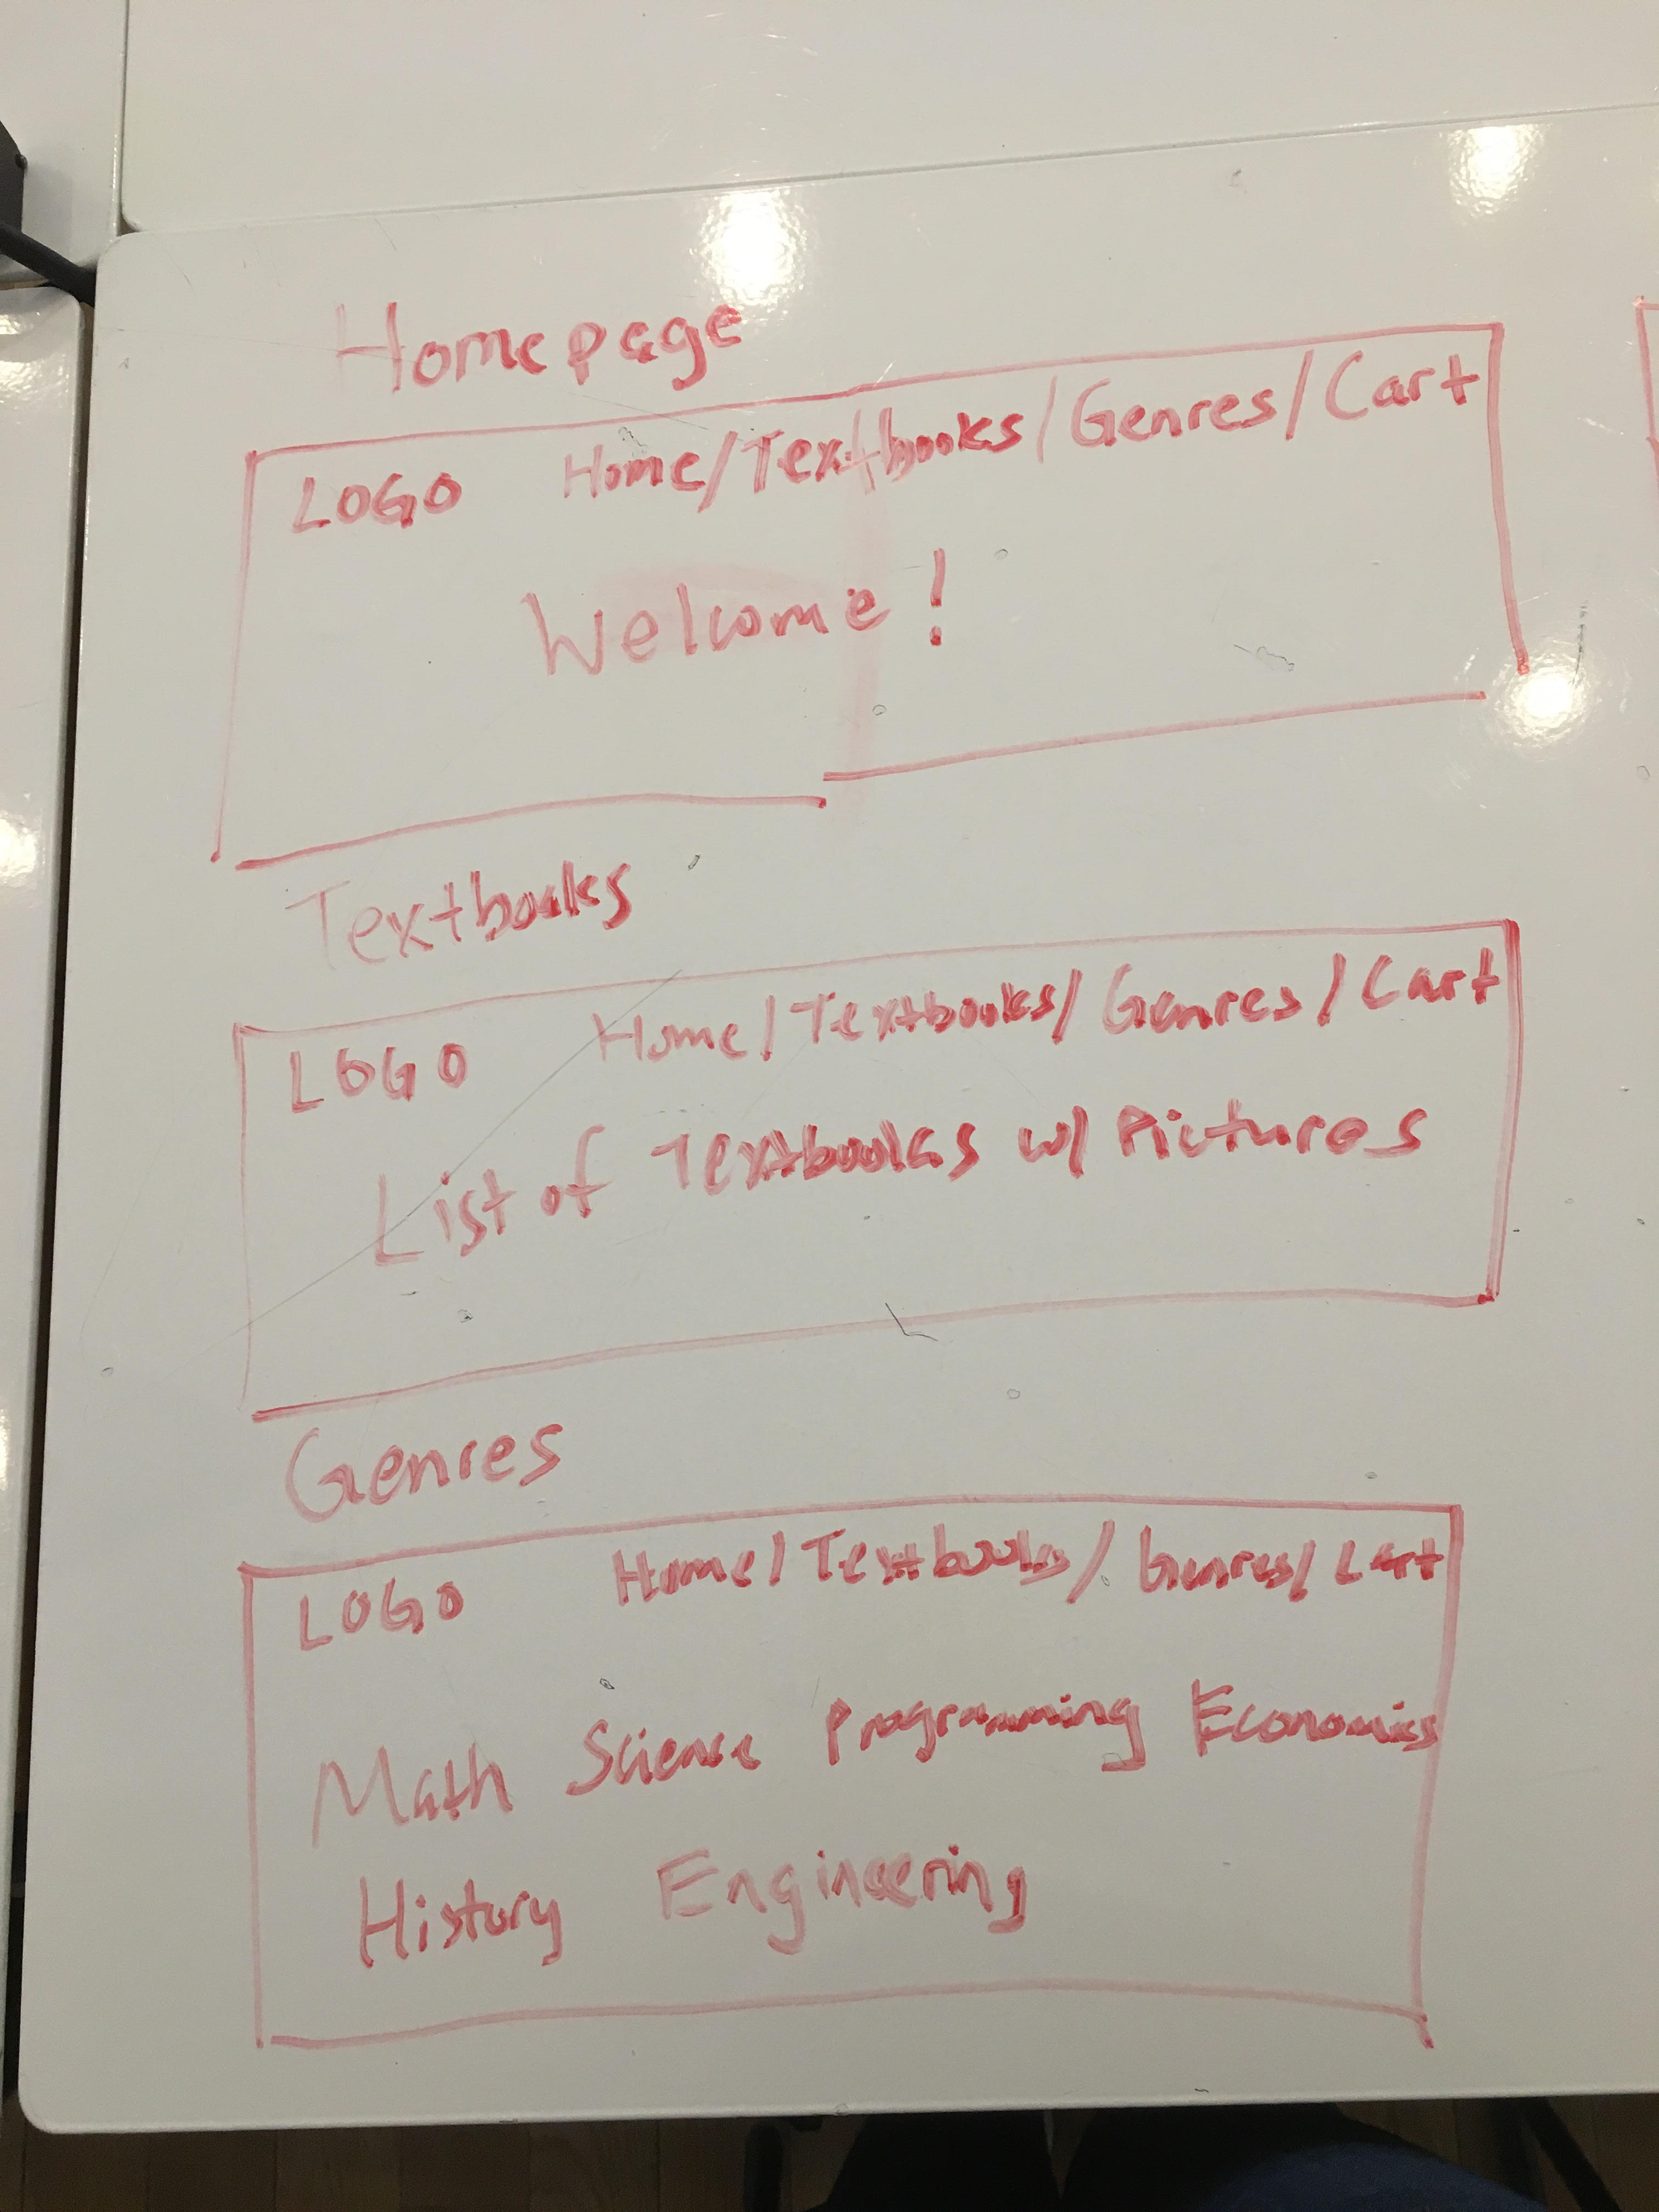 Homepage
LOGO Home/Textbooks/Genres/Cart
Welcome!
Textbooks
LOGO Home/Textbooks/Genres/Cart
List of Textbooks w/ Pictures
Genres
LOGO Home/Textbooks/Genres/Cart
Math Science Programming Economics
History Engineering